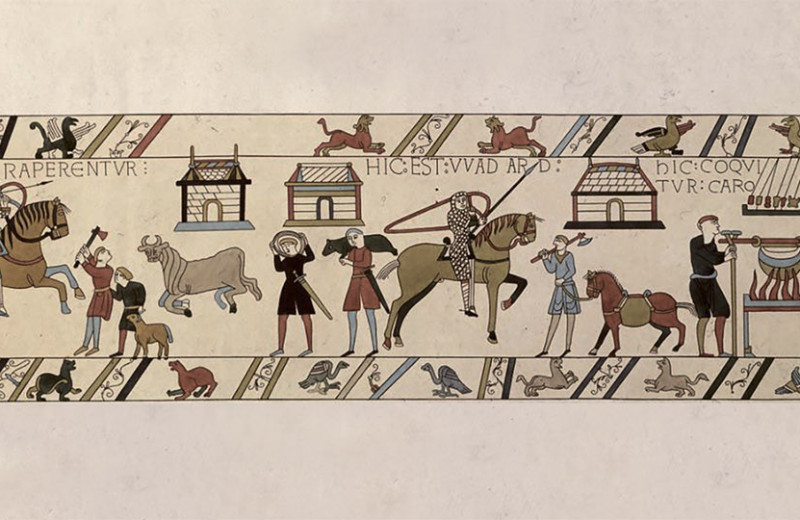 RAPERENTVR:
HIC:EST:VVAD ARD:
hIC:COQVI
TVR:CARO